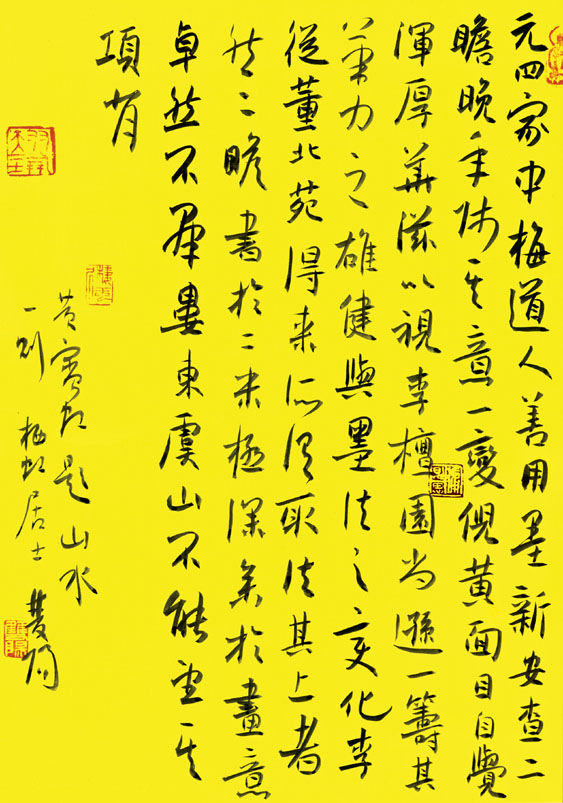 元四家中梅道人善用墨新安查二
瞻晚年師其意一變倪黃面目自覺
渾厚華滋以視李檀園尚遜一籌其
筆力之雄健與墨法之変化李
從董北苑得来所謂取法其上者
然二瞻書於二米極深於畫意
卓然不群婁東虞山不能望其
項背
黃賓虹題山水
一則 栖虹居士